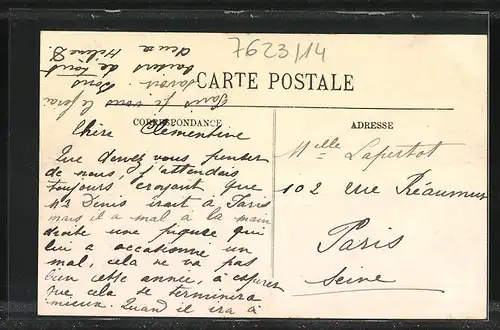 7623/14
CARTE POSTALE
CORRESPONDANCE
ADRESSE
Chère Clémentine
Que devez vous penser
de nous, j'attendais
toujours croyant que
Mr Denis irait à Paris
mais il a mal à la main
droite une piqure qui
lui a occasionné un
mal, cela ne va pas
bien cette année, à espérer
que cela se terminera
mieux. Quand il ira à
Paris je vous le ferai
savoir. Bons
baisers de tous
deux Hélène D.
Melle Lapertot
102 rue Réaumur
Paris
Seine